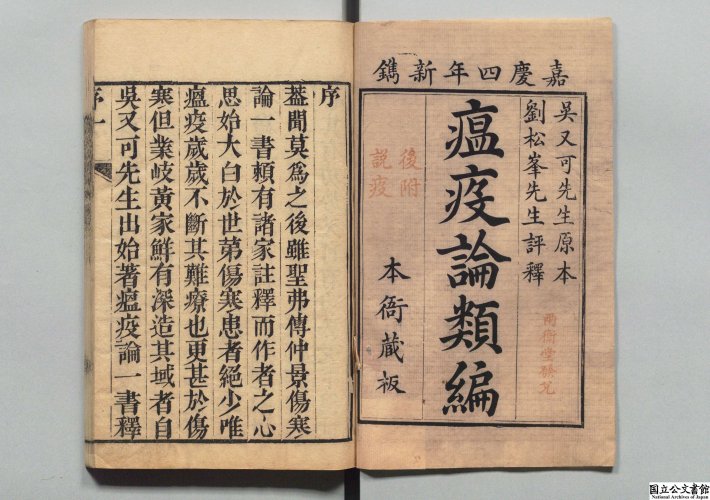 嘉慶四年新鐫
吳又可先生原本
劉松峯先生評釋
瘟疫論類編
後附
說疫
本衙藏板
序
葢聞莫爲之後雖聖弗傳仲景傷寒
論一書賴有諸家註釋而作者之心
思始大白於世第傷寒患者絕少唯
瘟疫歲歲不斷其難療也更甚於傷
寒但業岐黃家鮮有深造其域者自
吳又可先生出始著瘟疫論一書釋
序
一
国立公文書館
National Archives of Japan